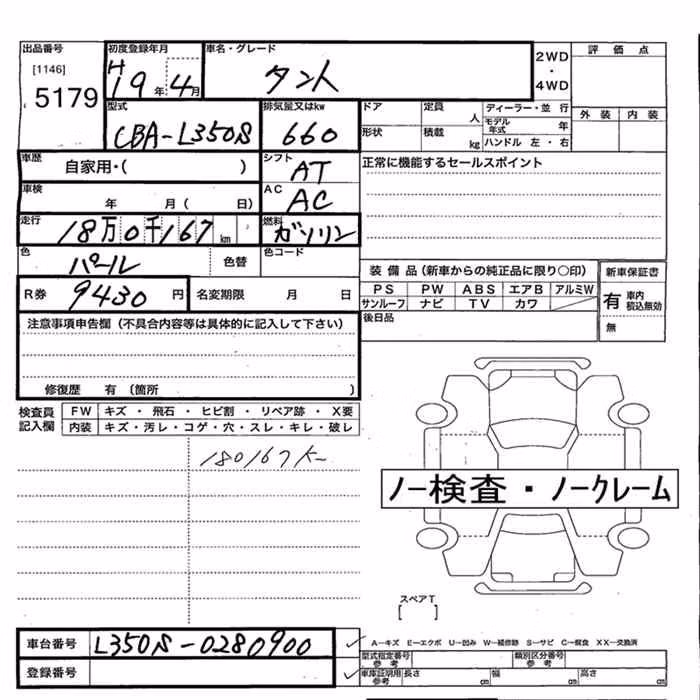 出品番号
[1146]
5179
初度登録年月
H19年4月
車名・グレード
タント
2WD
・
4WD
評価点
外装 内装
型式
CBA-L350S
排気量又はkw
660
ドア 定員 人
形状 積載 kg
ディーラー・並行
モデル年式 年
ハンドル 左・右
車歴 自家用・( )
シフト AT
車検 年 月( 日)
AC AC
走行 18万0千167km
燃料 ガソリン
正常に機能するセールスポイント
色 パール 色替
色コード
R券 9430円 名変期限 月 日
装備品(新車からの純正品に限り○印)
PS PW ABS エアB アルミW
サンルーフ ナビ TV カワ
新車保証書
有 車内積込無効
無
後日品
注意事項申告欄(不具合内容等は具体的に記入して下さい)
修復歴 有 〔箇所 〕
検査員記入欄
FW キズ・飛石・ヒビ割・リペア跡・X要
内装 キズ・汚レ・コゲ・穴・スレ・キレ・破レ
180167K-
ノー検査・ノークレーム
スペアT
[ ]
車台番号 L350S-0280900
登録番号
A—キズ E—エクボ U—凹み W—補修跡 S—サビ C—腐食 XX—交換済
型式指定番号 参考
類別区分番号 参考
車庫証明用 参考 長さ cm 幅 cm 高さ cm